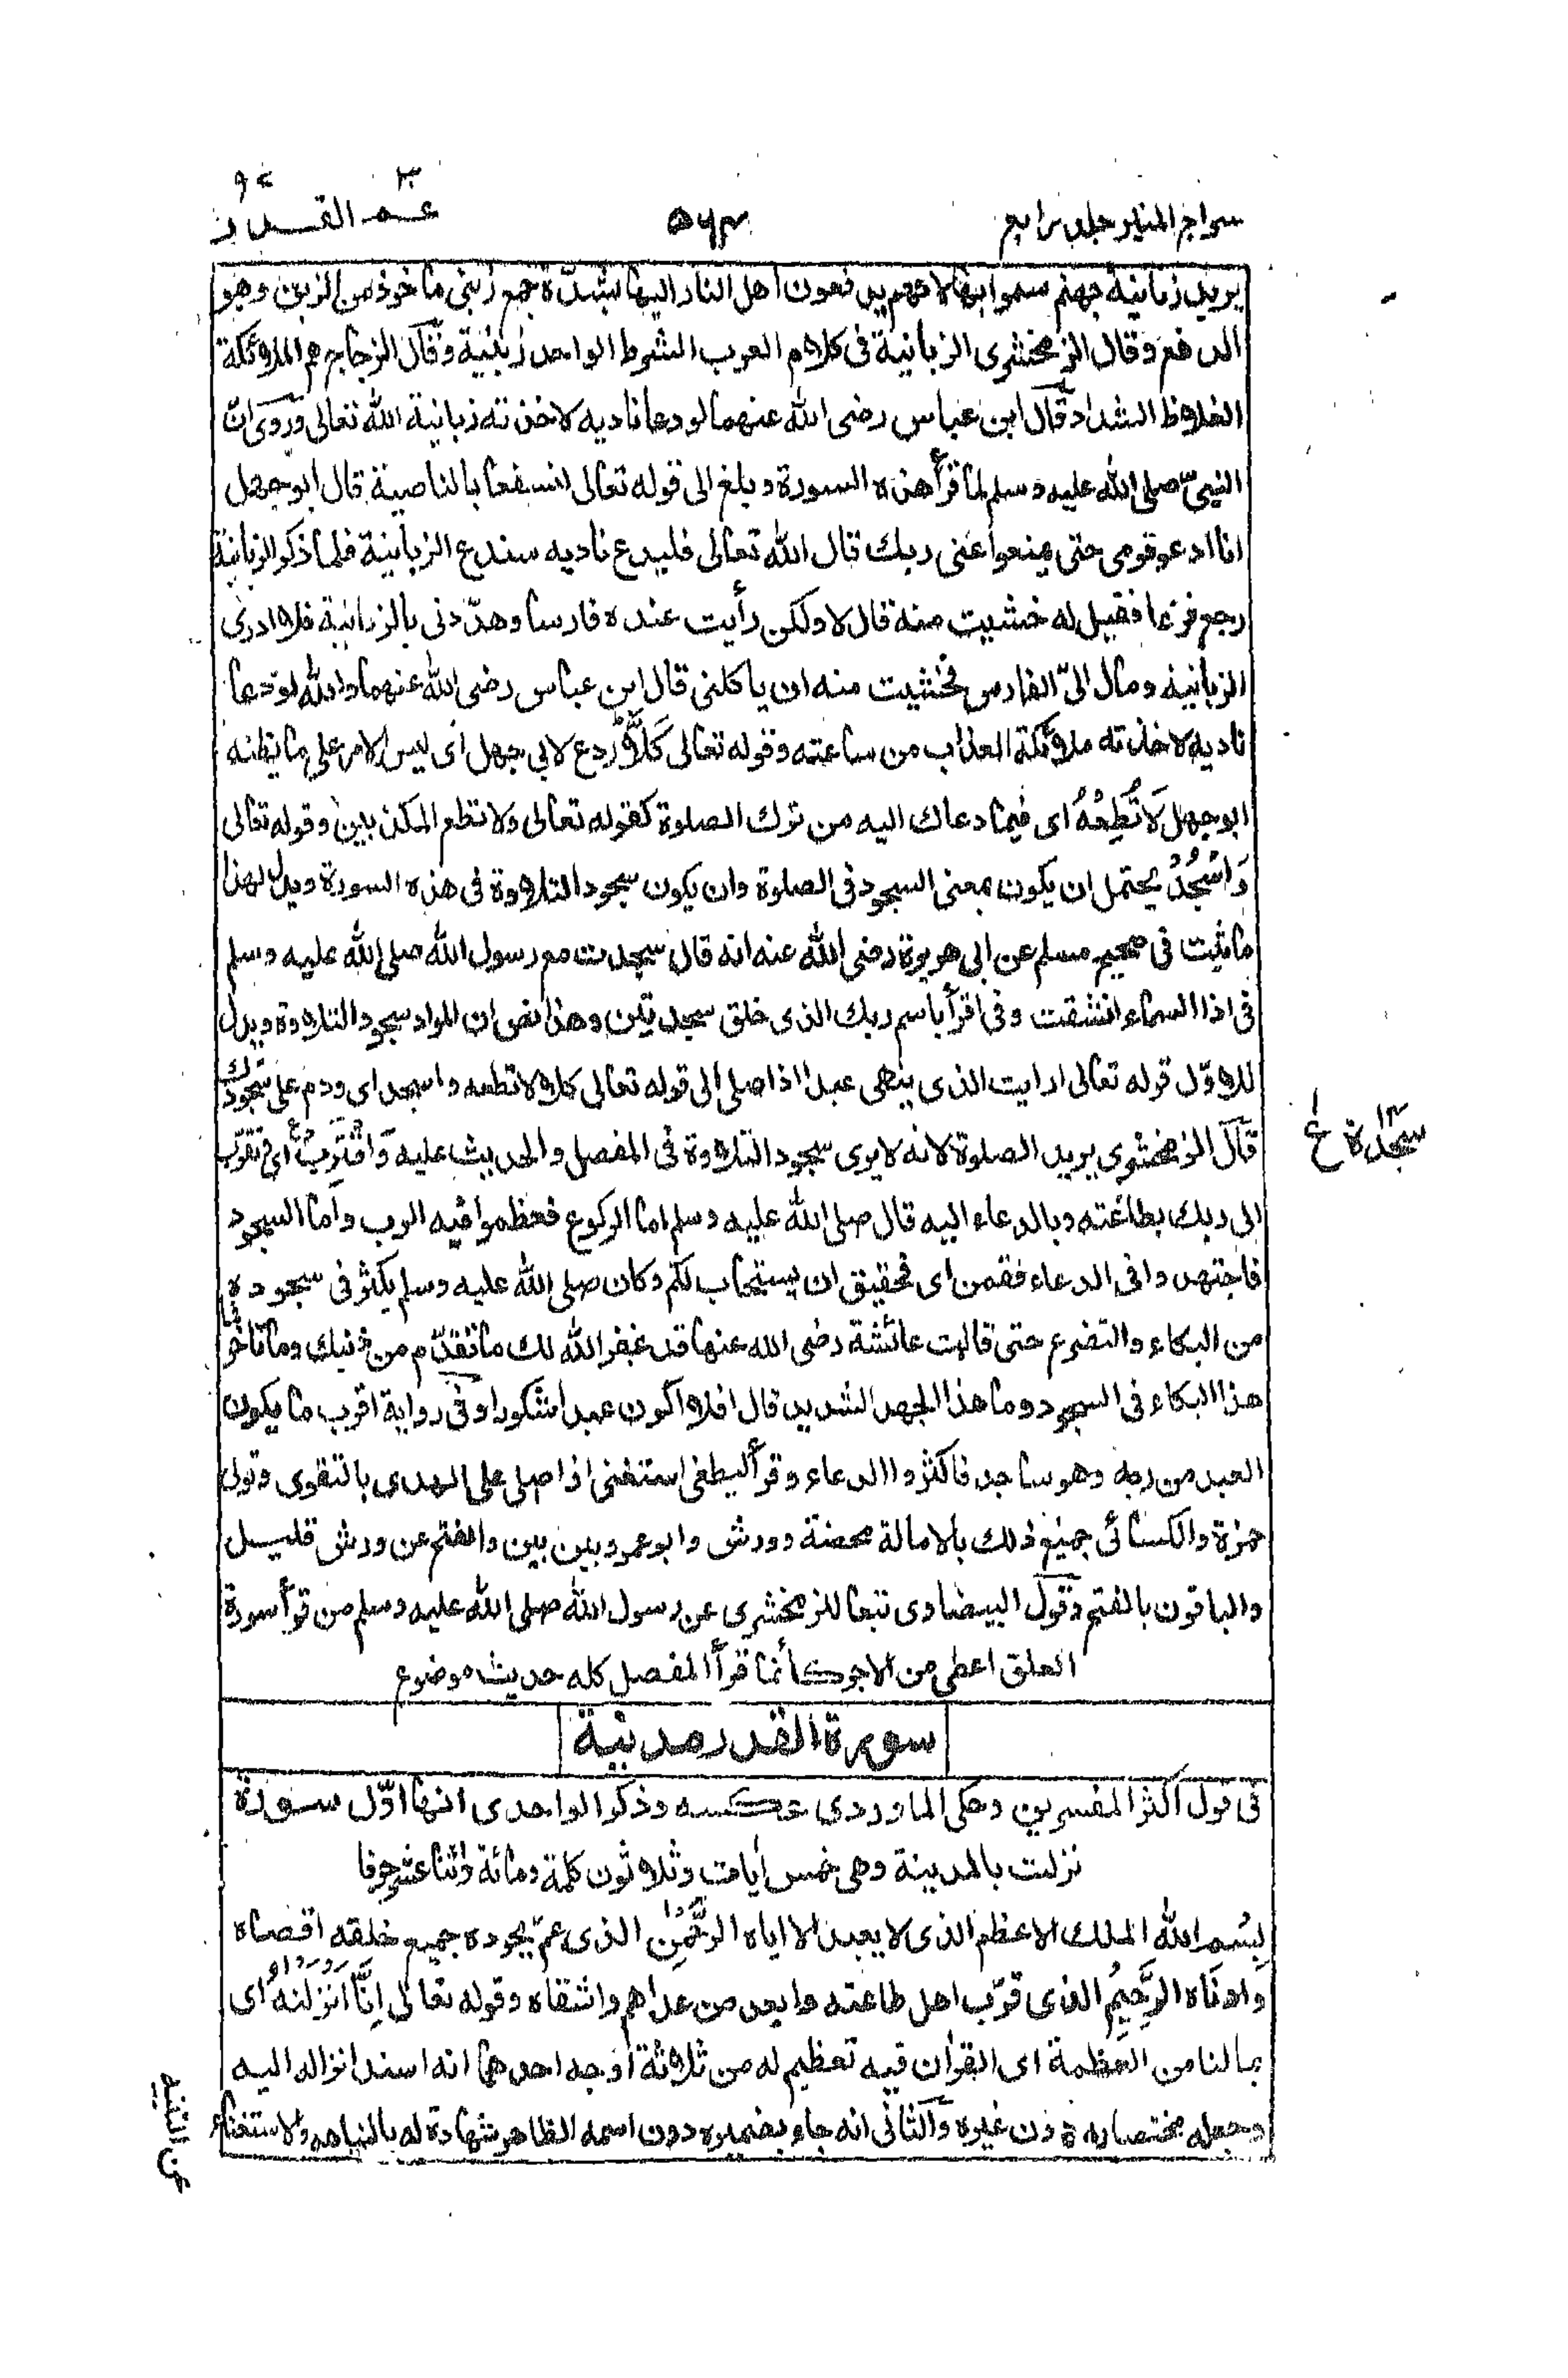 سراج المنير جلد رابع ٥٦٣ عم القدر ٩٧
يريد زبانية جهنم سموا بها لانهم يدفعون اهل النار اليها بشدّة جمع زبنى ماخوذ من الزبن وهو
الدفع وقال الزمخشرى الزبانية فى كلام العرب الشرط الواحد زبنية وقال الزجاج هم الملائكة
الغلاظ الشداد قال ابن عباس رضى الله عنهما لو دعا ناديه لاخذته زبانية الله تعالى وروى انّ
النبىّ صلى الله عليه وسلم لما قرأ هذه السورة وبلغ الى قوله تعالى لنسفعا بالناصية قال ابو جهل
انا ادعو قومى حتى يمنعوا عنى ربك قال الله تعالى فليدع ناديه سندع الزبانية فلما ذكر الزبانية
رجع فزعا فقيل له خشيت منه قال لا ولكن رأيت عنده فارسا وهدّدنى بالزبانية فلا ادرى
الزبانية ومال الىّ الفارس فخشيت منه ان ياكلنى قال ابن عباس رضى الله عنهما والله لو دعا
ناديه لاخذته ملائكة العذاب من ساعته وقوله تعالى كَلَّا ردع لابى جهل اى ليس الامر على ما يظنه
ابو جهل لَا تُطِعْهُ اى فيما دعاك اليه من ترك الصلوة كقوله تعالى ولا تطع المكذبين وقوله تعالى
وَاسْجُدْ يحتمل ان يكون بمعنى السجود فى الصلوة وان يكون سجود التلاوة فى هذه السورة ويدل لهذا
ما ثبت فى صحيح مسلم عن ابى هريرة رضى الله عنه انه قال سجدت مع رسول الله صلى الله عليه وسلم
فى اذا السماء انشقت وفى اقرأ باسم ربك الذى خلق سجدتين وهذا نص ان المراد سجود التلاوة ويدل
للاوّل قوله تعالى ارايت الذى ينهى عبدا اذا صلى الى قوله تعالى كلا لا تطعه واسجد اى ودم على سجودك
قال الزمخشرى يريد الصلوة لانه لا يرى سجود التلاوة فى المفصل والحديث عليه وَاقْتَرِبْ اى تقرّب
سجدة ع
الى ربك بطاعته وبالدعاء اليه قال صلى الله عليه وسلم اما الركوع فعظموا فيه الرب واما السجود
فاجتهدوا فى الدعاء فقمن اى فحقيق ان يستجاب لكم وكان صلى الله عليه وسلم يكثر فى سجوده
من البكاء والتضرع حتى قالت عائشة رضى الله عنها قد غفر الله لك ما تقدّم من ذنبك وما تأخر فما
هذا البكاء فى السجود وما هذا الجهد الشديد قال افلا اكون عبدا شكورا وفى رواية اقرب ما يكون
العبد من ربه وهو ساجد فاكثروا الدعاء وقرأ ليطغى استغنى اذا صلى على الهدى بالتقوى وتولى
حمزة والكسائى جميع ذلك بالامالة محضة وورش وابو عمرو بين بين والفتح عن ورش قليل
والباقون بالفتح وقول البيضاوى تبعا للزمخشرى عن رسول الله صلى الله عليه وسلم من قرأ سورة
العلق اعطى من الاجر كأنما قرأ المفصل كله حديث موضوع
سورة القدر مدنية
فى قول اكثر المفسرين وحكى الماوردى عكسه وذكر الواحدى انها اوّل سورة
نزلت بالمدينة وهى خمس ايات وثلاثون كلمة ومائة واثنا عشر حرفا
بِسْمِ اللهِ الملك الاعظم الذى لا يعبد الا اياه الرَّحْمٰنِ الذى عمّ بجوده جميع خلقه اقصاه
وادناه الرَّحِيْمِ الذى قرّب اهل طاعته وابعد من عداهم واشقاه وقوله تعالى اِنَّا اَنْزَلْنٰهُ اى
بما لنا من العظمة اى القراٰن فيه تعظيم له من ثلاثة اوجه احدها انه اسند انزاله اليه
وجعله مختصا به دون غيره والثانى انه جاء بضميره دون اسمه الظاهر شهادة له بالنباهة والاستغناء
عن التنبيه